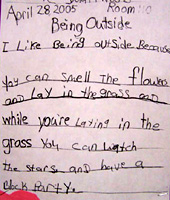 April 28 2005 Room:10
Being Outside
I Like Being outside Because
you can smell The flowers
and Lay in the grass and
while you're Laying in the
grass you can watch
the stars and have a
Block Party.